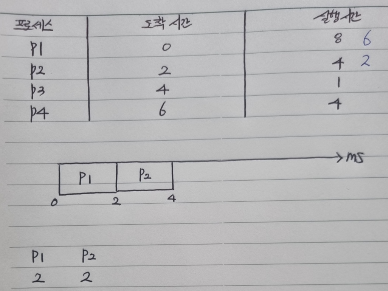 프로세스 도착 시간 실행시간
P1 0 8 6
P2 2 4 2
P3 4 1
P4 6 4
P1 P2 ms
0 2 4
P1 P2
2 2